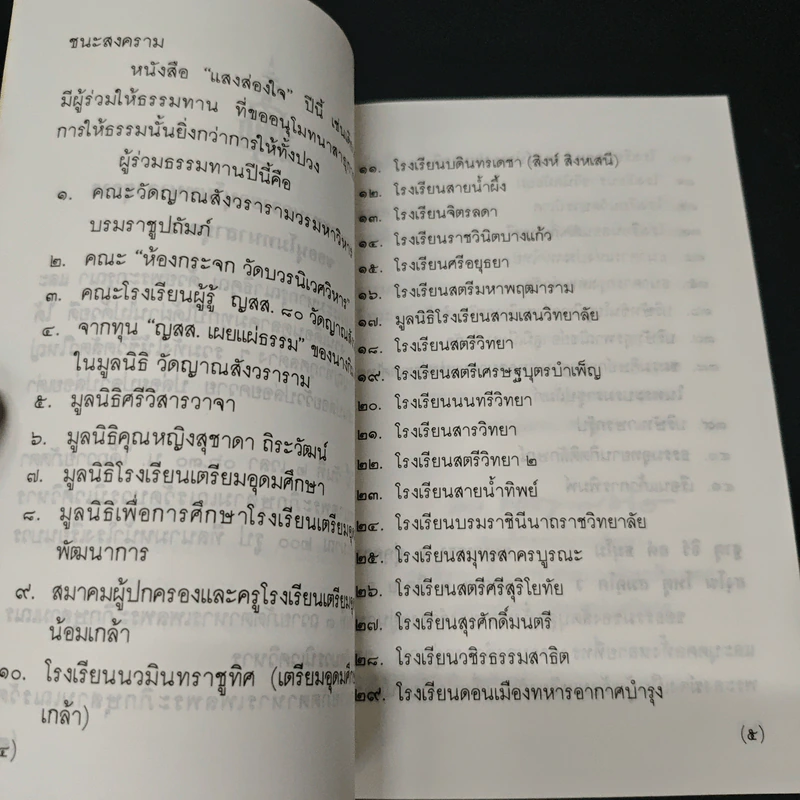 ชนะสงคราม
หนังสือ “แสงส่องใจ” ปีนี้
มีผู้ร่วมให้ธรรมทาน ที่ขออนุโมทนา
การให้ธรรมนั้นยิ่งกว่าการให้ทั้งปวง
ผู้ร่วมธรรมทานปีนี้คือ
๑. คณะวัดญาณสังวรารามวรมหาวิหาร
บรมราชูปถัมภ์
๒. คณะ “ห้องกระจก วัดบวรนิเวศวิหาร”
๓. คณะโรงเรียนผู้รู้ ญสส. ๘๐
๔. จากทุน “ญสส. เผยแผ่ธรรม”
ในมูลนิธิ วัดญาณสังวราราม
๕. มูลนิธิศรีวิสารวาจา
๖. มูลนิธิคุณหญิงสุชาดา ถิระวัฒน์
๗. มูลนิธิโรงเรียนเตรียมอุดมศึกษา
๘. มูลนิธิเพื่อการศึกษาโรงเรียนเตรียม
พัฒนาการ
๙. สมาคมผู้ปกครองและครูโรงเรียนเตรียม
น้อมเกล้า
๑๐. โรงเรียนนวมินทราชูทิศ (เตรียมอุดม
เกล้า)
๑๑. โรงเรียนบดินทรเดชา (สิงห์ สิงหเสนี)
๑๒. โรงเรียนสายน้ำผึ้ง
๑๓. โรงเรียนจิตรลดา
๑๔. โรงเรียนราชวินิตบางแก้ว
๑๕. โรงเรียนศรีอยุธยา
๑๖. โรงเรียนสตรีมหาพฤฒาราม
๑๗. มูลนิธิโรงเรียนสามเสนวิทยาลัย
๑๘. โรงเรียนสตรีวิทยา
๑๙. โรงเรียนสตรีเศรษฐบุตรบำเพ็ญ
๒๐. โรงเรียนนนทรีวิทยา
๒๑. โรงเรียนสารวิทยา
๒๒. โรงเรียนสตรีวิทยา ๒
๒๓. โรงเรียนสายน้ำทิพย์
๒๔. โรงเรียนบรมราชินีนาถราชวิทยาลัย
๒๕. โรงเรียนสมุทรสาครบูรณะ
๒๖. โรงเรียนสตรีศรีสุริโยทัย
๒๗. โรงเรียนสุรศักดิ์มนตรี
๒๘. โรงเรียนวชิรธรรมสาธิต
๒๙. โรงเรียนดอนเมืองทหารอากาศบำรุง
(๕)